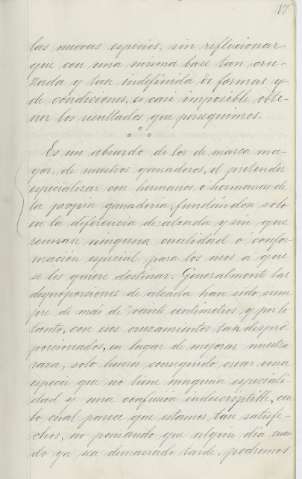 17
las nuevas especies, sin reflecionar
que con una misma base tan cru-
zada y tan indefinida de formas y
de condiciones, es casi imposible obte-
ner los resultados que perseguimos.
Es un absurdo de los de marca ma-
yor, de nuestros ganaderos, el pretender
especializar con hermanos o hermanas de
la propia ganadería, fundandose solo
en la diferencia de alzada y sin que
reunan ninguna cualidad o confor-
mación especial para los usos a que
se les quiere destinar. Generalmente las
desproporciones de alzada han sido siem-
pre de más de veinte centimetros, y por lo
tanto, con esos cruzamientos tan despro-
porcionados, en lugar de mejorar nuestra
raza, solo hemos conseguido crear una
especie que no tiene ninguna especiali-
dad si una confusión indescriptible, con
lo cual parece que estamos tan satisfe-
chos, no pensando que algún día cuan-
do ya sea demasiado tarde, podremos